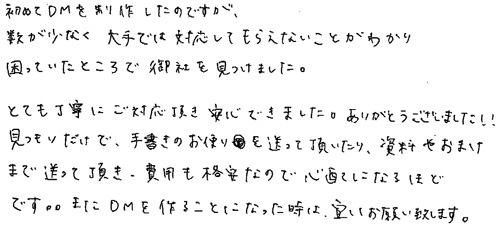 初めてDMを制作したのですが、
数が少なく大手では対応してもらえないことがわかり
困っていたところで御社を見つけました。
とても丁寧にご対応頂き安心できました。ありがとうございました!!
見つもりだけで、手書きのお便りを送って頂いたり、資料やおまけ
まで送って頂き、費用も格安なので心配になるほど
です。。またDMを作ることになった時は、宜しくお願い致します。